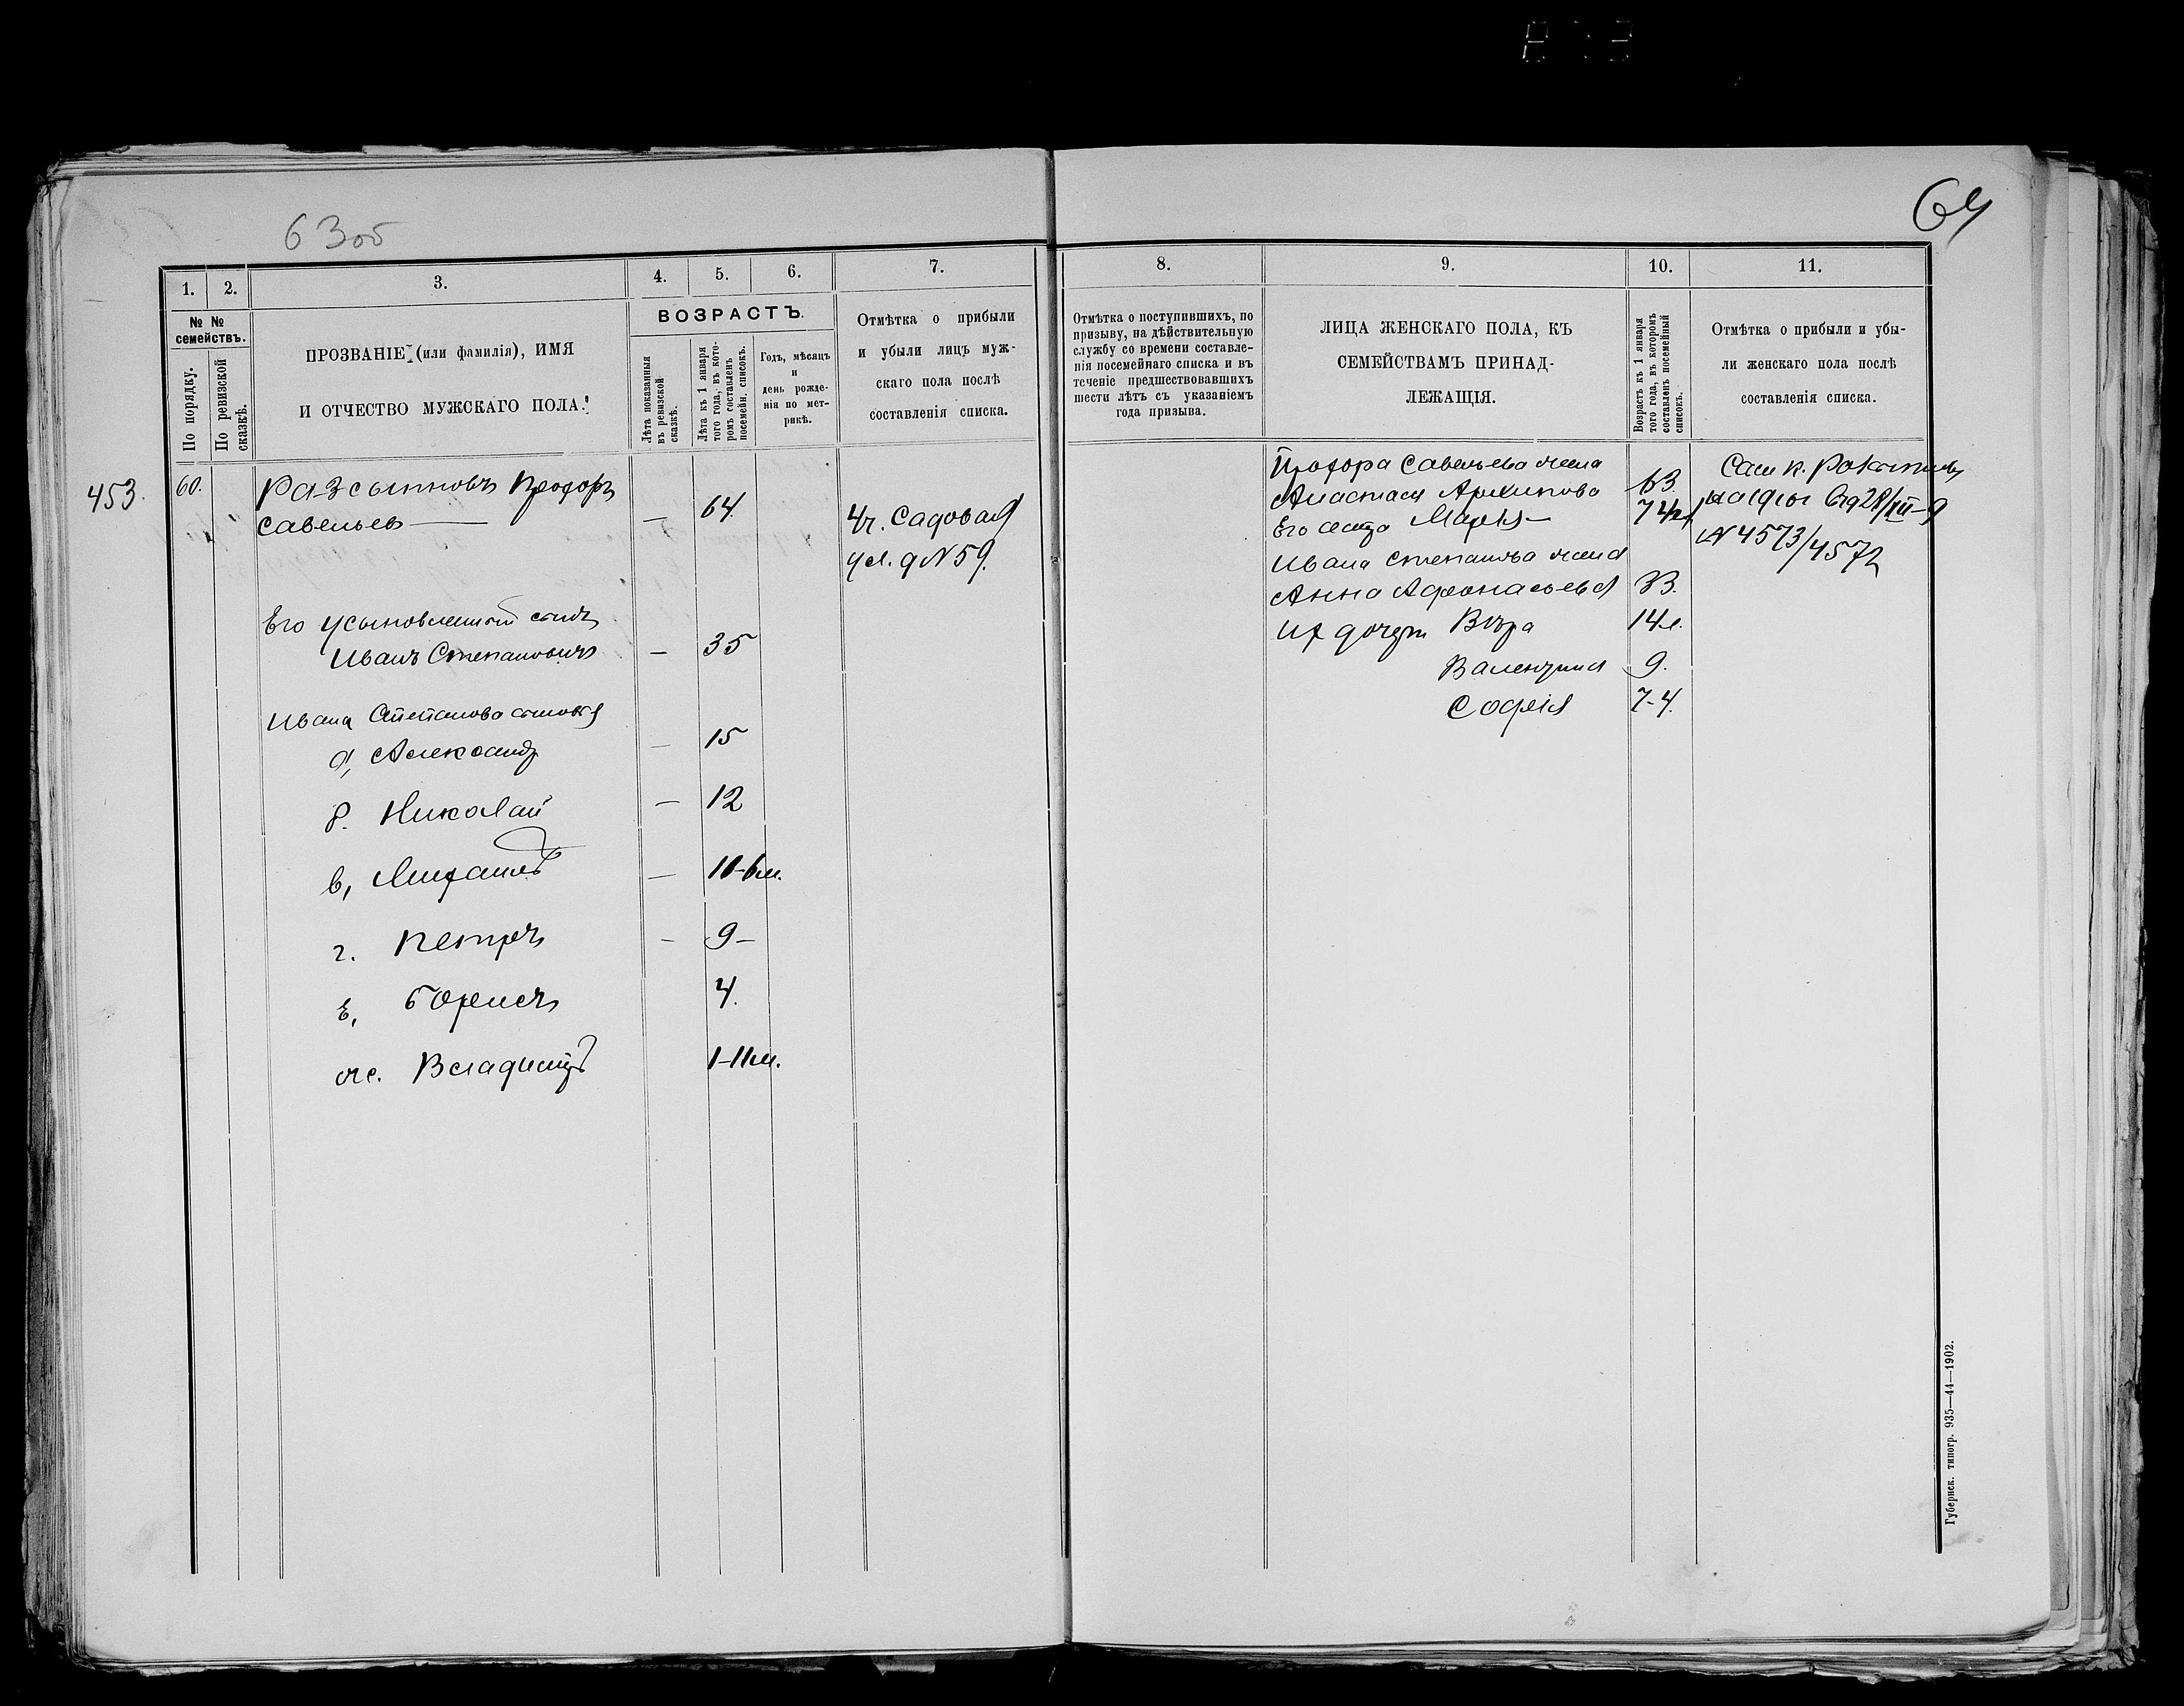 63об
64
1.
2.
3.
4.
5.
6.
7.
№ №
семействъ.
По порядку.
По ревизской
сказкѣ.
ПРОЗВАНІЕ (или фамилія), ИМЯ
И ОТЧЕСТВО МУЖСКАГО ПОЛА.
ВОЗРАСТЪ.
Лѣта показанныя
въ ревизской
сказкѣ.
Лѣта къ 1 января
того года, въ кото-
ромъ составленъ
посемейн. списокъ.
Годъ, мѣсяцъ
и
день рожде-
нія по мет-
рикѣ.
Отмѣтка о прибыли
и убыли лицъ муж-
скаго пола послѣ
составленія списка.
453.
60.
Разсыпновъ Прохоръ
Савельев — 64
4ч. Садовая
ул. д № 59.
Его усыновленный сынъ
Иванъ Степановичъ — 35
Ивана Степанова сыновья
а, Александр — 15
б. Николай — 12
в, Михаилъ — 10-6м.
г. Петръ — 9—
е, Борисъ 4.
ж. Владимiръ 1-11м.
8.
9.
10.
11.
Отмѣтка о поступившихъ, по
призыву, на дѣйствительную
службу со времени составле-
нія посемейнаго списка и въ
теченіе предшествовавшихъ
шести лѣтъ съ указаніемъ
года призыва.
ЛИЦА ЖЕНСКАГО ПОЛА, КЪ
СЕМЕЙСТВАМЪ ПРИНАД-
ЛЕЖАЩІЯ.
Возрастъ къ 1 января
того года, въ которомъ
составленъ посемейный
списокъ.
Отмѣтка о прибыли и убы-
ли женскаго пола послѣ
составленія списка.
Прохора Савельева жена
Анастасія Архипова 63.
Его сестра Марія — 74
Ивана Степанова жена
Анна Афонасьева 33.
Их дочери Вѣра 14л.
Валентина 9.
Софія 7-4.
№ 4573/4572
Губернск. типогр. 935—44—1902.